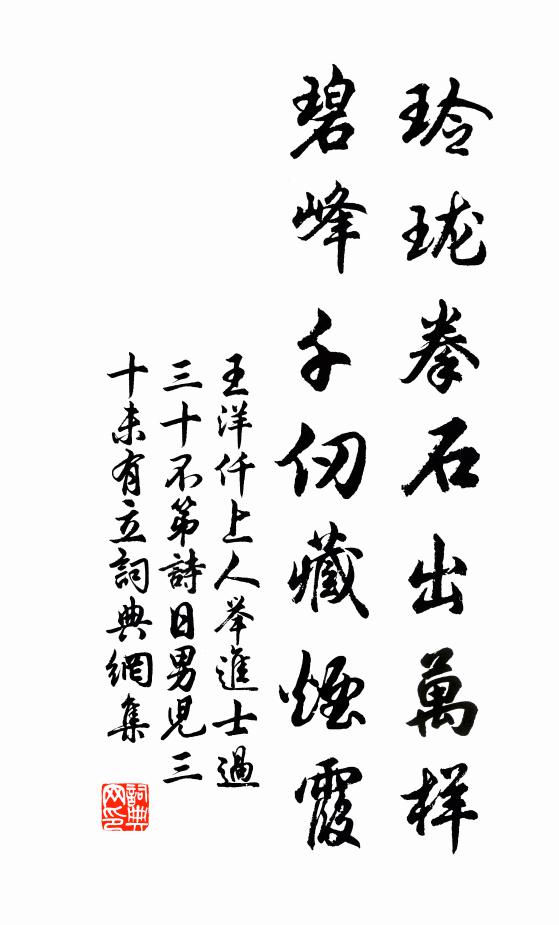 玲瓏拳石出萬样
碧峰千仞藏煙霞
王洋仟上人举進士過
三十不第詩日男児三
十未有立詞典網集
詞典网印